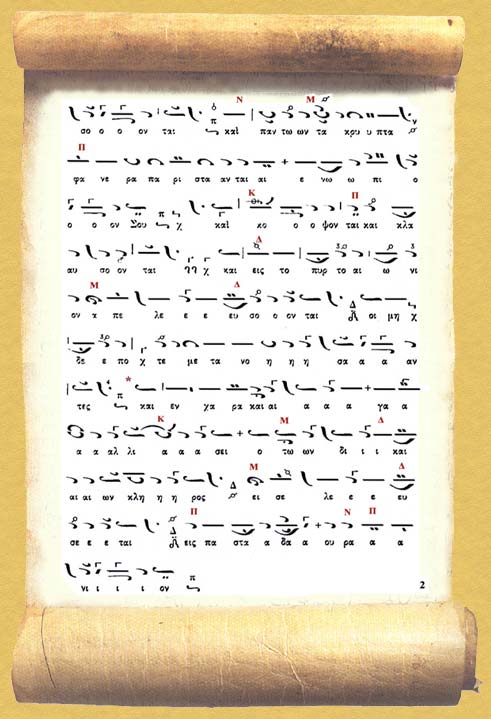 Ν Μ
σο ο ο ον ται και παν τω ων τα κρυ υ πτα
Π
φα νε ρα πα ρι στα αν ται αι ε νω ω πι ο
Κ Π
ο ο ον Σου χ και κο ο ο ψον ται και κλα
Δ
αυ σο ον ται χ και εις το πυρ το αι ω νι
Μ Δ
ον α πε λε ε ε ευ σο ο ον ται οι μη χ
δε ε πο χ τε με τα νο η η η σα α α αν
*
τες και εν χα ρα και αι α α α γα α
Κ Μ Δ
α α αλ λι α α α σει ο τω ων δι ι ι και
Μ Δ
αι αι ων κλη η η ρος ει σε λε ε ε ευ
Π Ν Π
σε ε ε ται εις πα στα α δα α ου ρα α α
νι ι ι ι ον
2